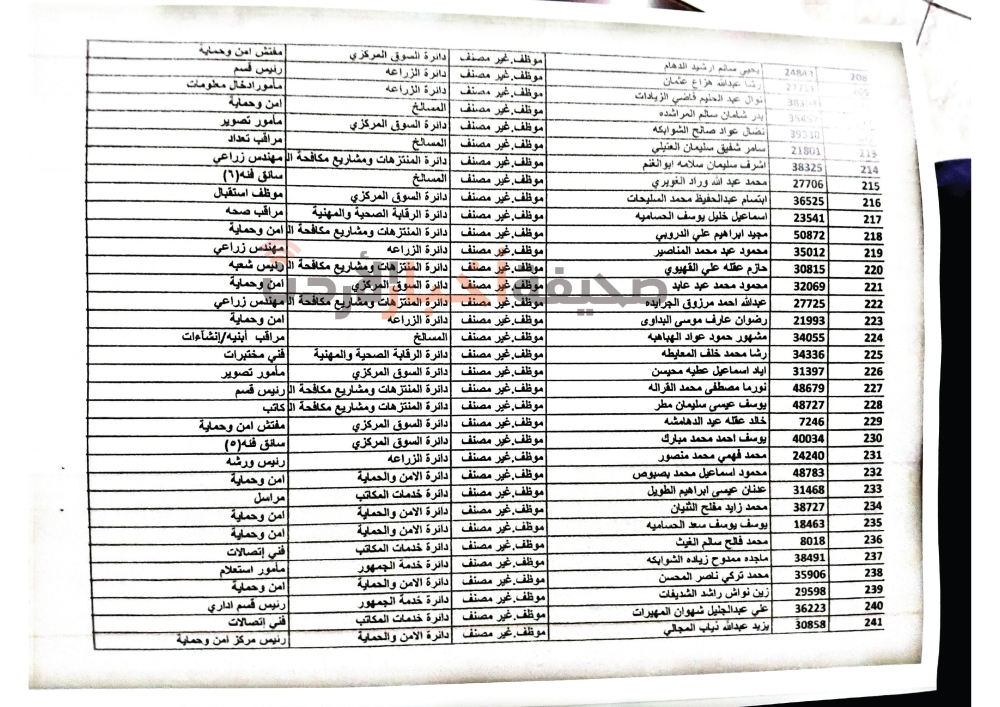 208 24843 يحيى سالم ارشيد الدهام موظف.غير مصنف دائرة السوق المركزي مفتش امن وحماية
رشا عبدالله هزاع عثمان موظف.غير مصنف دائرة الزراعه رئيس قسم
نوال عبد الحليم قاضي الزيادات موظف.غير مصنف دائرة الزراعه مأمور ادخال معلومات
بدر شامان سالم المراشده موظف.غير مصنف المسالخ امن وحماية
نضال عواد صالح الشوابكه موظف.غير مصنف دائرة السوق المركزي مأمور تصوير
213 21801 سامر شفيق سليمان العتيلي موظف.غير مصنف المسالخ مراقب تعداد
214 38325 اشرف سليمان سلامه ابوالغنم موظف.غير مصنف دائرة المنتزهات ومشاريع مكافحة ال مهندس زراعي
215 27706 محمد عبد الله وراد الغويري موظف.غير مصنف المسالخ سائق فئه(٦)
216 36525 ابتسام عبدالحفيظ محمد السليحات موظف.غير مصنف دائرة السوق المركزي موظف استقبال
217 23541 اسماعيل خليل يوسف الحساميه موظف.غير مصنف دائرة الرقابة الصحية والمهنية مراقب صحه
218 50872 مجيد ابراهيم علي الدروبي موظف.غير مصنف دائرة المنتزهات ومشاريع مكافحة ال امن وحماية
219 35012 محمود عبد محمد المناصير موظف.غير مصنف دائرة الزراعه مهندس زراعي
220 30815 حازم عقله علي القهيوي موظف.غير مصنف دائرة المنتزهات ومشاريع مكافحة ال رئيس شعبه
221 32069 محمود محمد عبد عابد موظف.غير مصنف دائرة السوق المركزي امن وحماية
صحيفة أخبار الأردن
222 27725 عبدالله احمد مرزوق الجرايده موظف.غير مصنف دائرة المنتزهات ومشاريع مكافحة ال مهندس زراعي
223 21993 رضوان عارف موسى البداوى موظف.غير مصنف دائرة الزراعه امن وحماية
224 34055 مشهور حمود عواد الهباهبه موظف.غير مصنف المسالخ مراقب أبنيه/إنشاءات
225 34336 رشا محمد خلف المعايطه موظف.غير مصنف دائرة الرقابة الصحية والمهنية فني مختبرات
226 31397 اياد اسماعيل عطيه محيسن موظف.غير مصنف دائرة السوق المركزي مأمور تصوير
227 48679 نورما مصطفى محمد القراله موظف.غير مصنف دائرة المنتزهات ومشاريع مكافحة ال رئيس قسم
228 48727 يوسف عيسى سليمان مطر موظف.غير مصنف دائرة المنتزهات ومشاريع مكافحة ال كاتب
229 7246 خالد عقله عبد الدهامشه موظف.غير مصنف دائرة السوق المركزي مفتش امن وحماية
230 40034 يوسف احمد محمد مبارك موظف.غير مصنف دائرة السوق المركزي سائق فئه(٥)
231 24240 محمد فهمي محمد منصور موظف.غير مصنف دائرة الزراعه رئيس ورشه
232 48783 محمود اسماعيل محمد بصبوص موظف.غير مصنف دائرة الامن والحماية امن وحماية
233 31468 عدنان عيسى ابراهيم الطويل موظف.غير مصنف دائرة خدمات المكاتب مراسل
234 38727 محمد زايد مفلح الثنيان موظف.غير مصنف دائرة الامن والحماية امن وحماية
235 18463 يوسف يوسف سعد الحساميه موظف.غير مصنف دائرة الامن والحماية امن وحماية
236 8018 محمد فالح سالم الغيث موظف.غير مصنف دائرة خدمات المكاتب فني إتصالات
237 38491 ماجده ممدوح زياده الشوابكه موظف.غير مصنف دائرة خدمة الجمهور مأمور استعلام
238 35906 محمد تركي ناصر المحسن موظف.غير مصنف دائرة الامن والحماية امن وحماية
239 29598 زين نواش راشد الشديفات موظف.غير مصنف دائرة خدمة الجمهور رئيس قسم اداري
240 36223 علي عبدالجليل شهوان المهيرات موظف.غير مصنف دائرة خدمات المكاتب فني إتصالات
241 30858 يزيد عبدالله ذياب المجالي موظف.غير مصنف دائرة الامن والحماية رئيس مركز امن وحماية